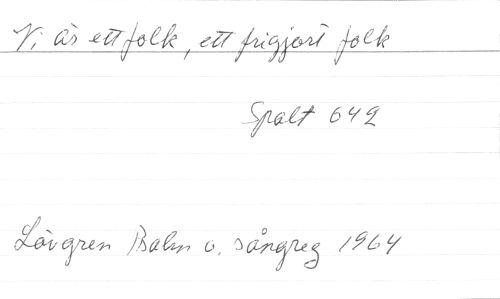 Vi är ett folk, ett frigjort folk
Spalt 642
Lövgren Psalm o. sångreg 1964